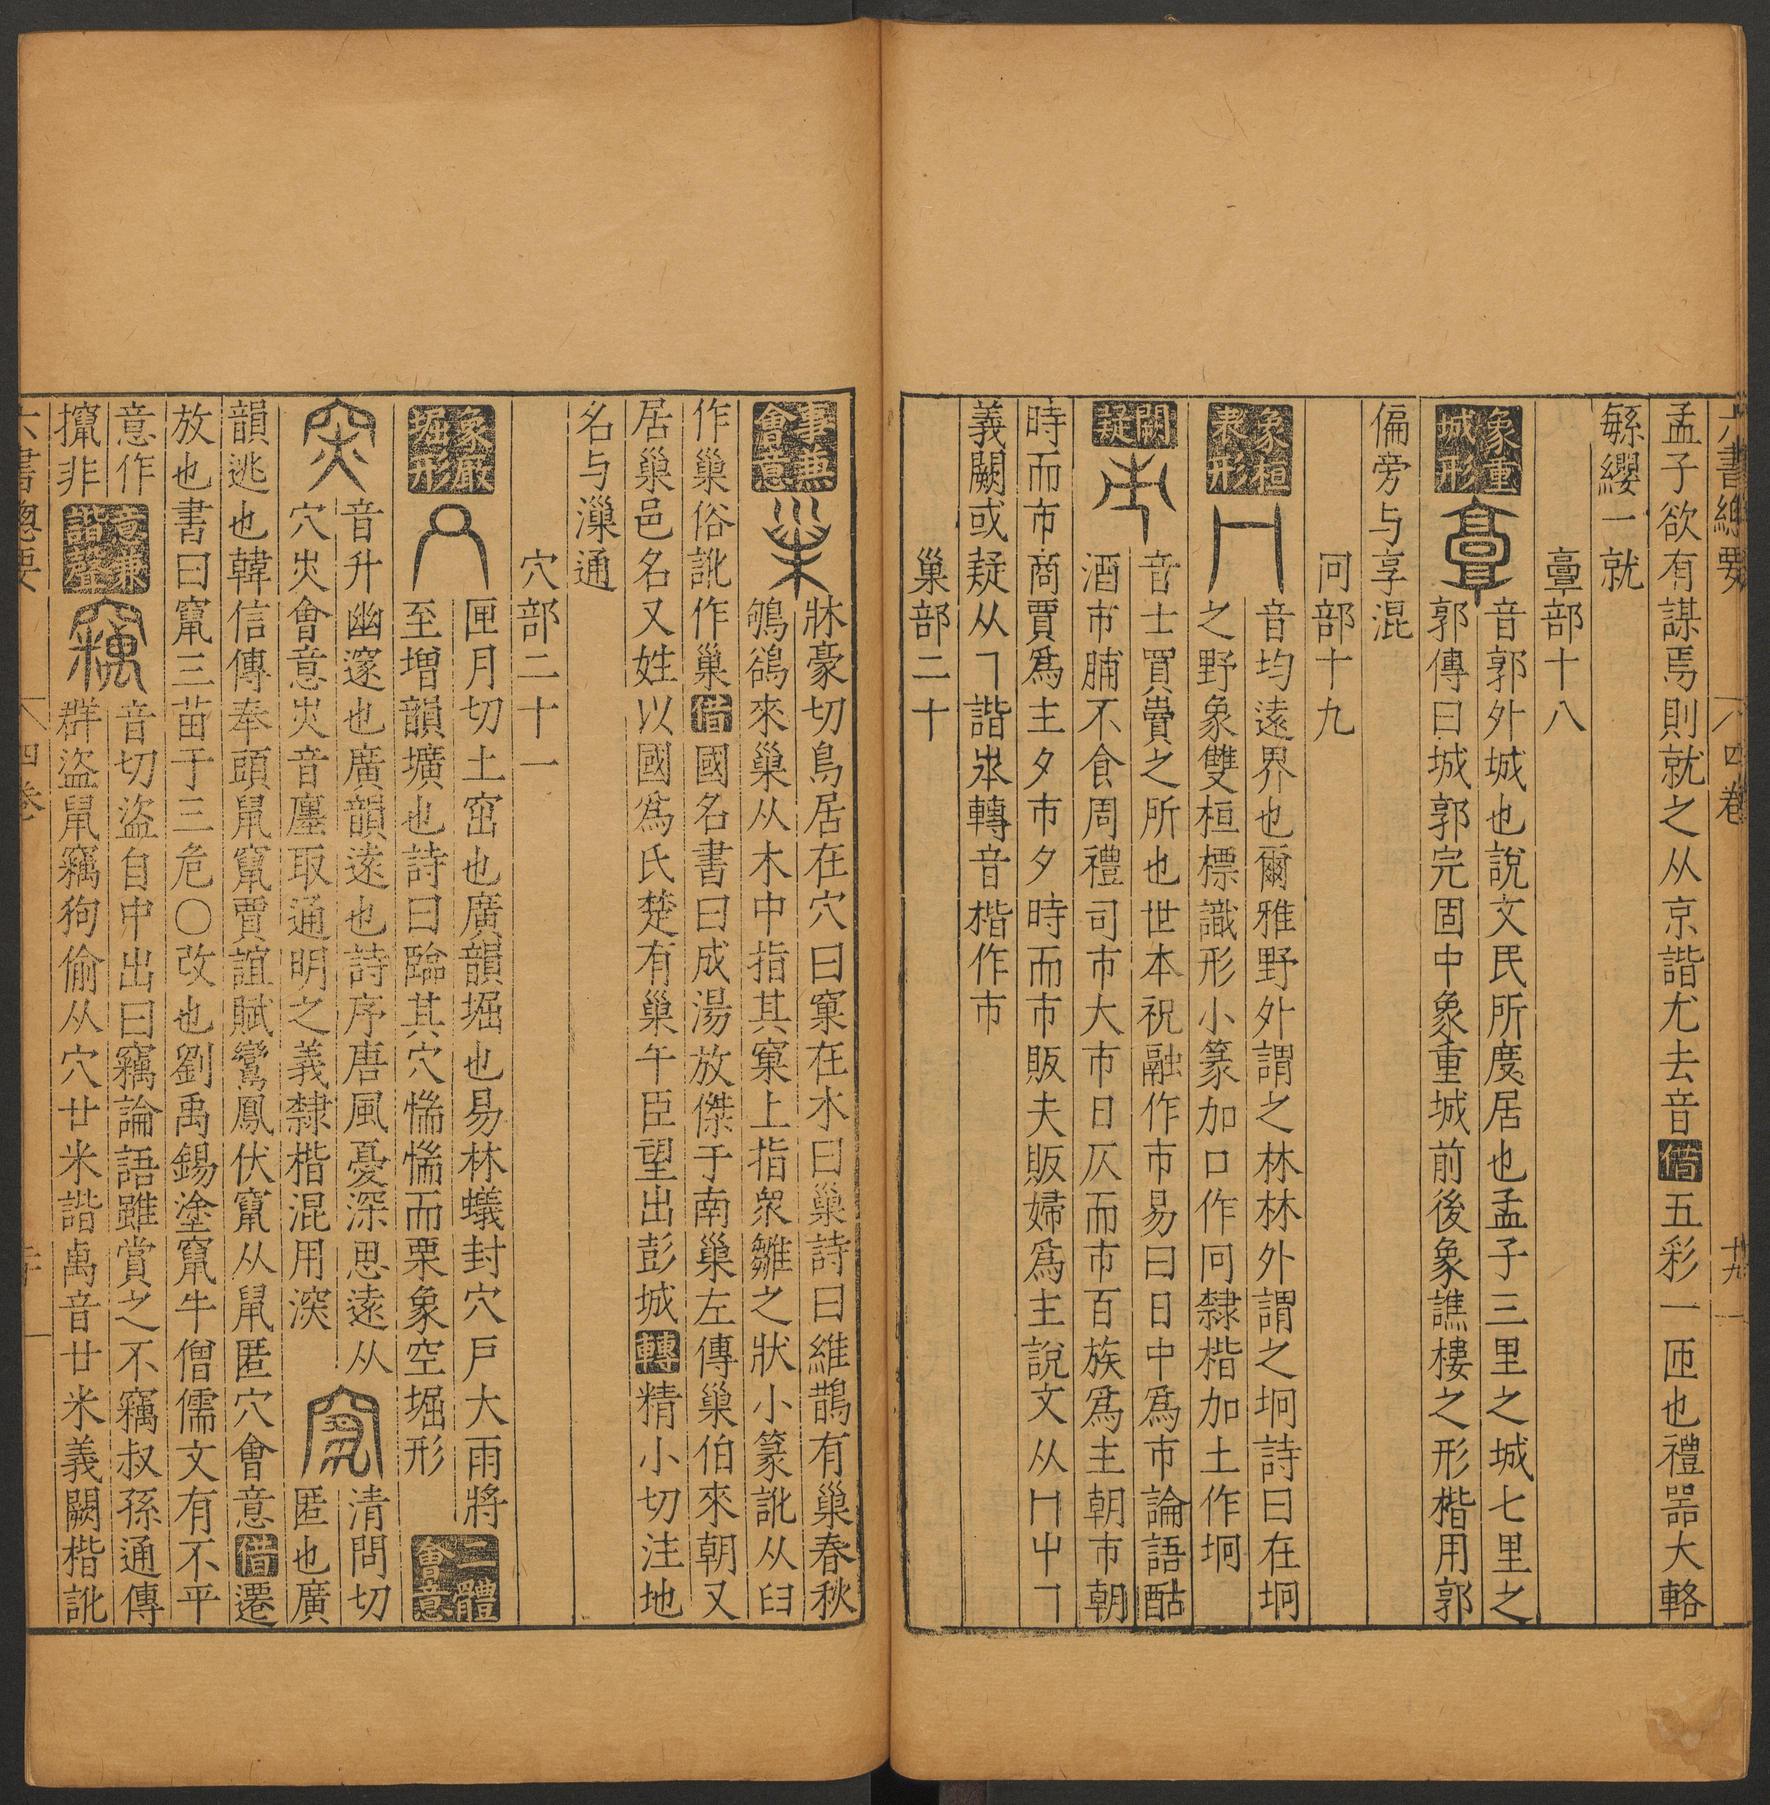 六書總要 四卷 十九
孟子欲有謀焉則就之从京諧尤去音借五彩一匝也禮器大輅
繁纓一就
𩫖部十八
象重城形 音郭外城也說文民所度居也孟子三里之城七里之
郭傳曰城郭完固中象重城前後象譙樓之形楷用郭
偏旁与享混
冋部十九
象桓表形 冂 音均遠界也爾雅野外謂之林林外謂之坰詩曰在坰
之野象雙桓標識形小篆加口作冋隸楷加土作坰
闕疑 音士買賣之所也世本祝融作市易曰日中爲市論語酤
酒市脯不食周禮司市大市日仄而市百族爲主朝市朝
時而市商賈爲主夕市夕時而市販夫販婦爲主說文从冂㞢
義闕或疑从㇕諧𣥂轉音楷作市
巢部二十
事兼會意 牀豪切鳥居在穴曰窠在木曰巢詩曰維鵲有巢春秋
鴝鵒來巢从木中指其窠上指衆雛之狀小篆訛从臼
作巢俗訛作巢借國名書曰成湯放傑于南巢左傳巢伯來朝又
居巢邑名又姓以國爲氏楚有巢午臣望出彭城轉精小切注地
名与漅通
穴部二十一
象嚴堀形 匣月切土窋也廣韻堀也易林蟻封穴戶大雨將
至增韻壙也詩曰臨其穴惴惴而栗象空堀形 二體會意
音升幽邃也廣韻遠也詩序唐風憂深思遠从
穴火會意火音廛取通明之義隸楷混用深 清問切
匿也廣
韻逃也韓信傳奉頭鼠竄賈誼賦鸞鳳伏竄从鼠匿穴會意借遷
放也書曰竄三苗于三危〇改也劉禹錫塗竄牛僧儒文有不平
意作 音切盜自中出曰竊論語雖賞之不竊叔孫通傳
攛非 意兼諧聲 群盜鼠竊狗偷从穴廿米諧禼音廿米義闕楷訛
六書總要 四卷 二十